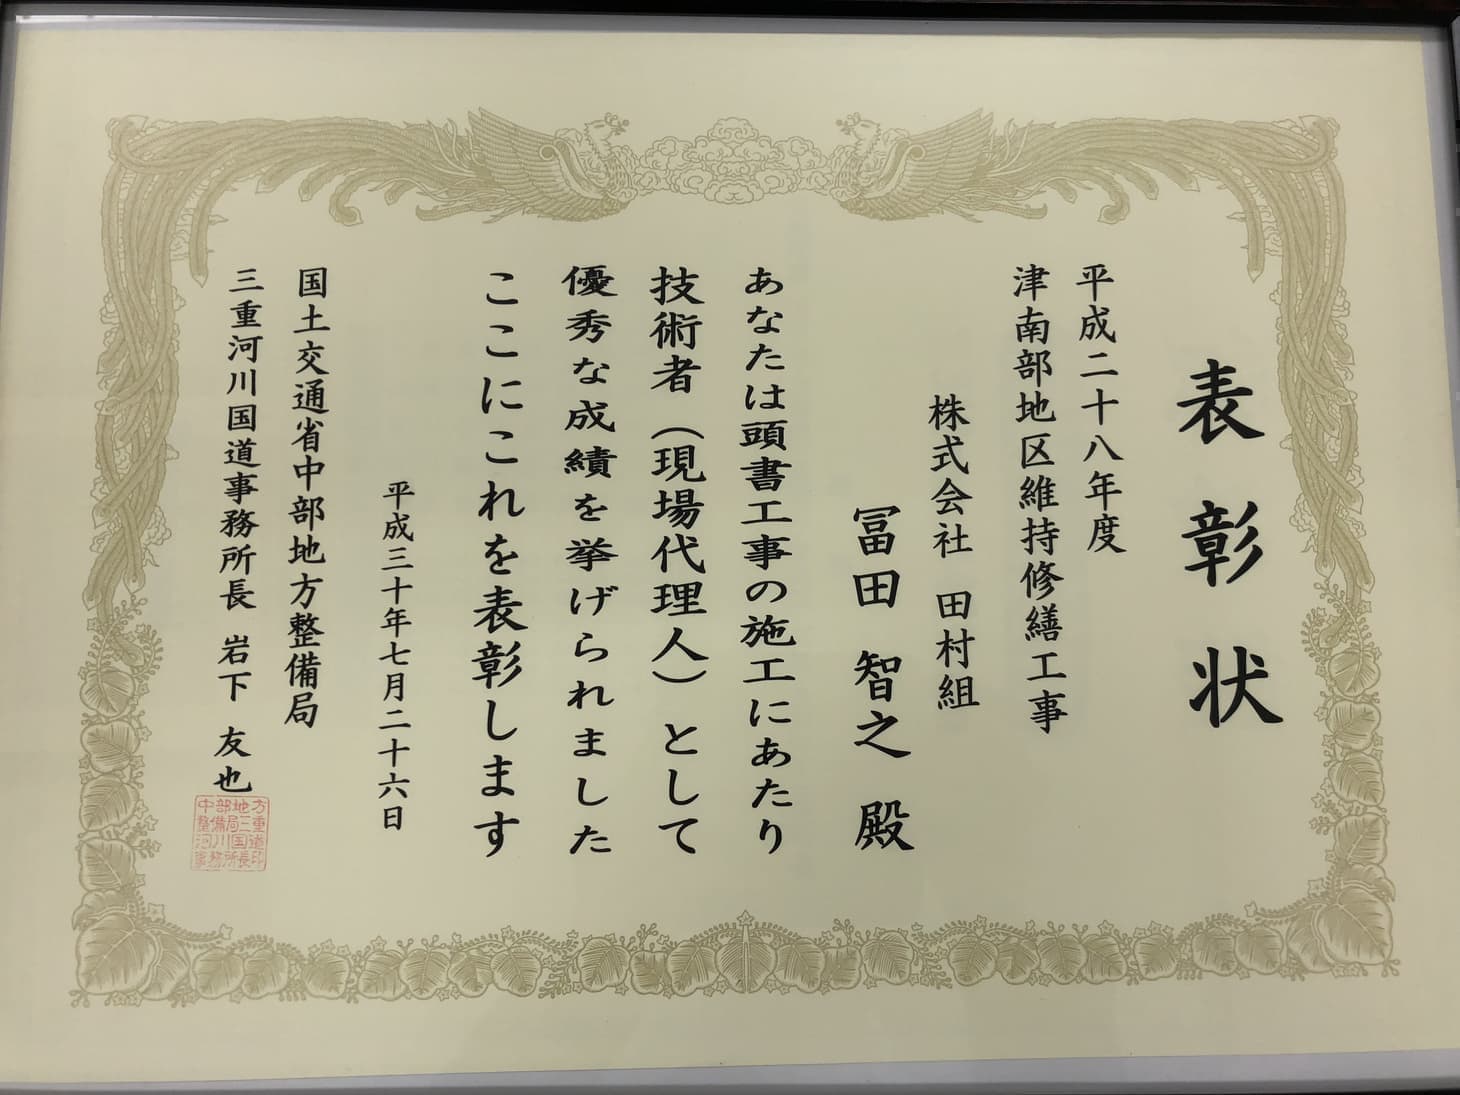 表彰状
平成二十八年度
津南部地区維持修繕工事
株式会社 田村組
冨田 智之 殿
あなたは頭書工事の施工にあたり
技術者（現場代理人）として
優秀な成績を挙げられました
ここにこれを表彰します
平成三十年七月二十六日
国土交通省中部地方整備局
三重河川国道事務所長 岩下 友也
中部地方
整備局三重
河川国道
事務所長印